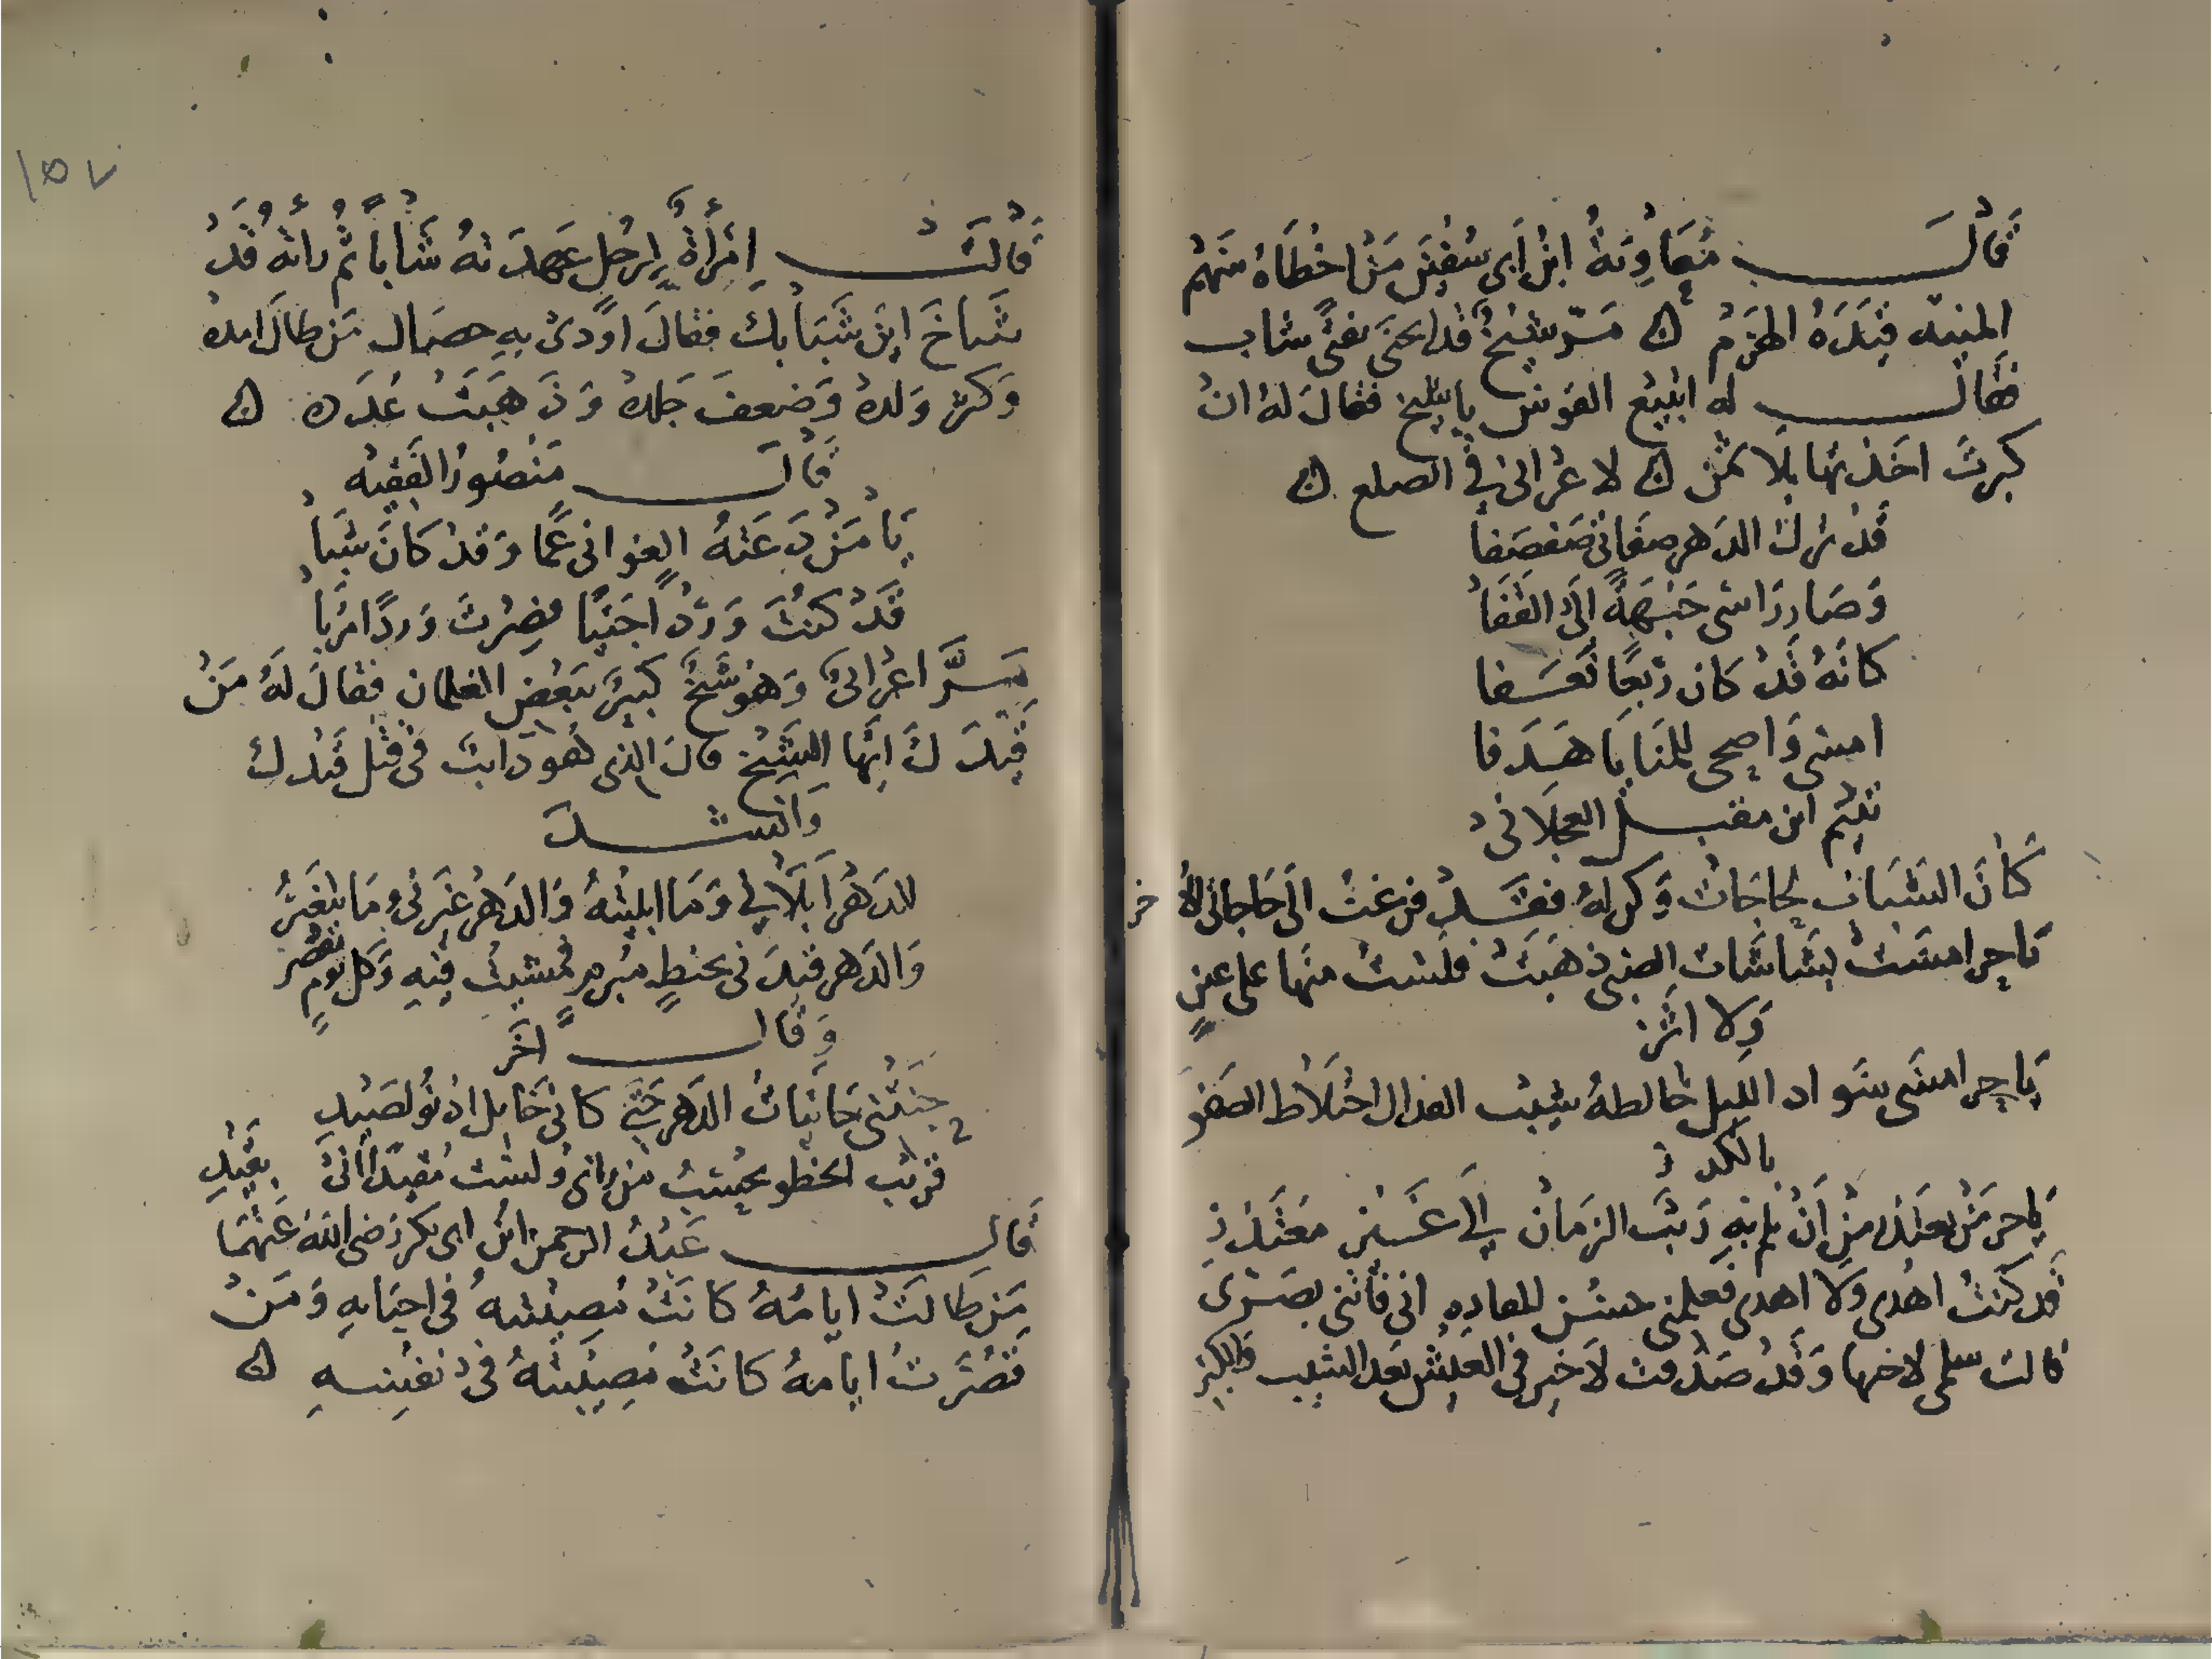 قال معاوية ابن أبي سفين من اخطاه سهم
المنية قيده الهرم ٥ مر شيخ قد انحنى بفتى شاب
فقال له اتبيع القوس يا شيخ فقال له ان
كبرت اخذتها بلا ثمن ٥ لاعرابي في الصلع ٥
قد ترك الدهر صفاتي صفصفا
وصار راسي جبهة الى القفا
كانه قد كان ربعا فعفا
امسي واضحي للمنايا هدفا
تميم ابن مقبل العجلاني
كان الشباب لحاجات وكن له فقد فرغت الى حاجاتي الاخر
يا حر امست بشاشات الصبى ذهبت فلست منها على عين
ولا اثر
يا حر امسى سواد الليل خالطه شيب القذال اختلاط الصفو
بالكدر
يا حر من يعتذر من ان يلم به ريب الزمان فاني غير معتذر
قد كنت اهدي ولا اهدى فعلمني حسن المقادة اني فاتني بصري
قالت سلمى لاختها وقد صدقت لا خير في العيش بعد الشيب والكبر
١٥٧
قالت امرأة لرجل عهدته شابا ثم رأته قد
شاخ اين شبابك فقال اودى به خصال من طال امده
وكثر ولده وضعف جلده وذهبت عدده ٥
قال منصور الفقيه
يا من دعته الغواني عما وقد كان شبا
قد كنت وردا جنيا فصرت وردا مربا
مر اعرابي وهو شيخ كبير ببعض الغلمان فقال له من
قيدك ايها الشيخ قال الذي هو دائب في فتل قيدك
وانشد
الدهر ابلاني وما ابليته والدهر غيرني وما يتغير
والدهر قيدني بخيط مبرم فمشيت فيه وكل يوم يقصر
وقال اخر
حنتني حانيات الدهر حتى كاني خاتل ادنو لصيد
قريب الخطو يحسب من رآني ولست مقيدا أني بقيد
قال عبد الرحمن ابن ابي بكر رضي الله عنهما
من طالت ايامه كانت مصيبته في احبابه ومن
قصرت ايامه كانت مصيبته في نفسه ٥